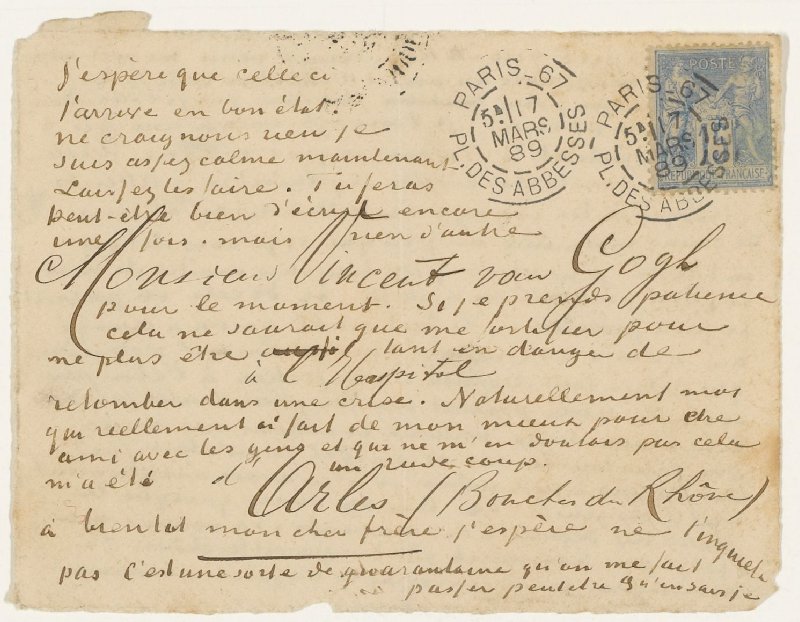 J'espère que celle ci
t'arrive en bon état.
ne craignons rien je
suis assez calme maintenant.
Laissez les faire. Tu feras
peut-être bien d'écrire encore
une fois. mais rien d'autre
Monsieur Vincent van Gogh
pour le moment. Si je prends patience
cela ne saurait que me fortifier pour
ne plus être aussi tant en danger de
à l'Hospital
retomber dans une crise. Naturellement moi
qui reellement ai fait de mon mieux pour être
ami avec les gens et qui ne m'en doutais pas cela
m'a été un rude coup.
d'Arles (Bouches du Rhône)
à bientot mon cher frère j'espère ne t'inquiete
pas c'est une sorte de quarantaine qu'on me fait
passer peutetre qu'en sais je
PARIS_67
5E 17
MARS
89
PL. DES ABBESSES
PARIS_67
5E 17
MARS
89
PL. DES ABBESSES
POSTE
REPUBLIQUE FRANCAISE